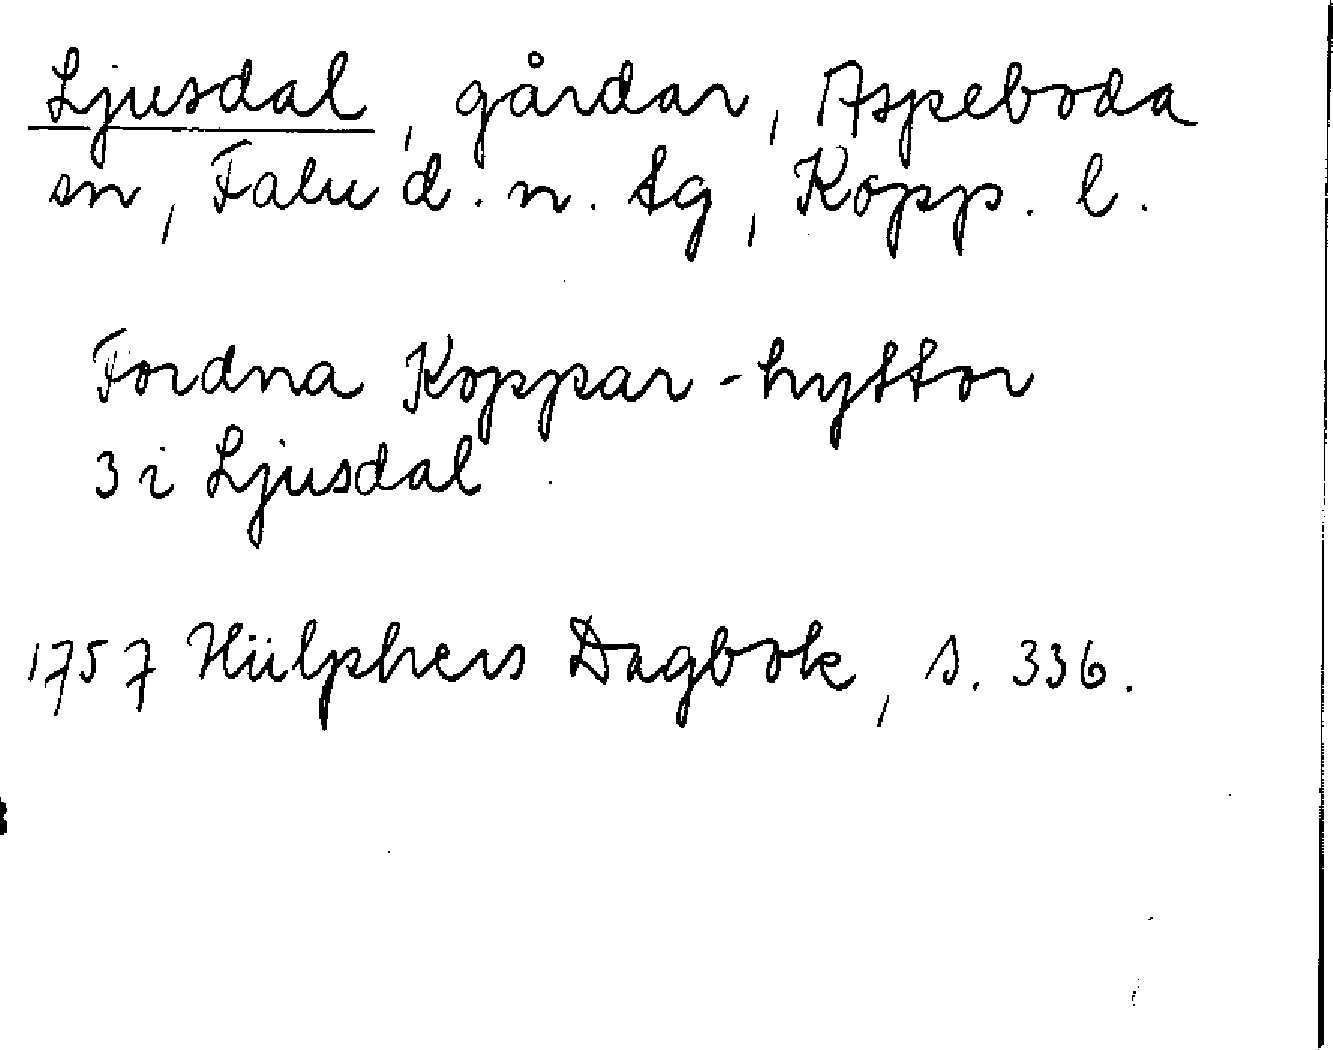 Ljusdal, gårdar, Aspeboda
sn, Falu d. n. tg, Kopp. l.
Fordna Koppar-hyttor
3 i Ljusdal
1757 Hülphers Dagbok, s. 336.